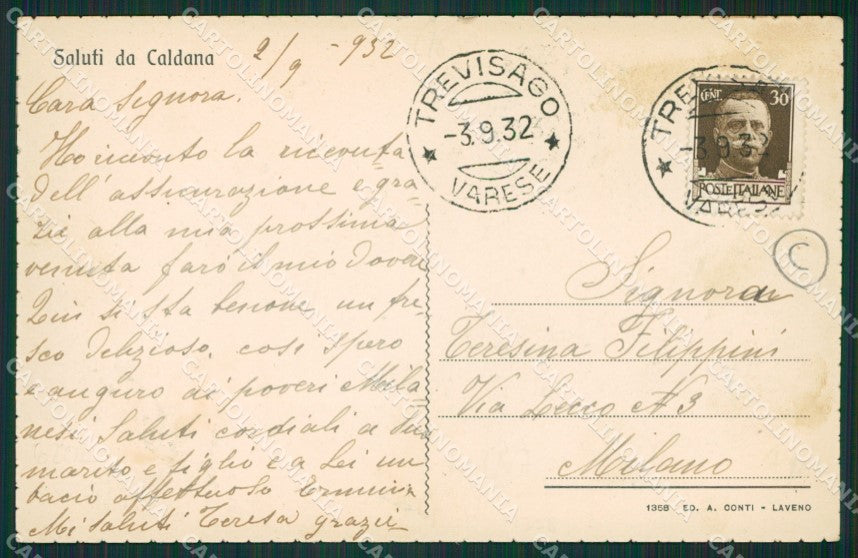 Saluti da Caldana
2/9 - 932
Cara Signora.
Ho ricevuto la ricevuta
dell'assicurazione e gra-
zie alla mia prossima
venuta farò il mio dovere
Qui si sta benone un fre-
sco delizioso, così spero
e auguro ai poveri Mila-
nesi Saluti cordiali a suo
marito e figlio e a Lei un
bacio affettuoso
Mi saluti Teresa grazie
TREVISAGO
-3.9.32
VARESE
TRE
-3.9.32
VARESE
CENT 30
POSTE ITALIANE
C
Signora
Teresina Filippini
Via Lecco N 3
Milano
1358 ED. A. CONTI - LAVENO
CARTOLINOMANIA